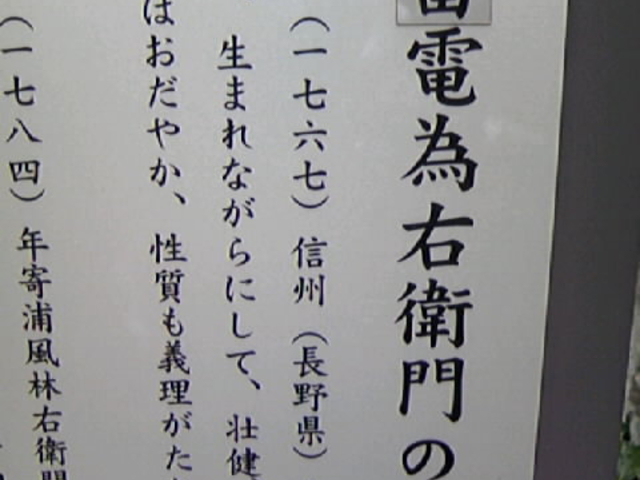 雷電為右衛門の
（一七六七）信州（長野県）
生まれながらにして、壮健
はおだやか、性質も義理がた
（一七八四）年寄浦風林右衛門